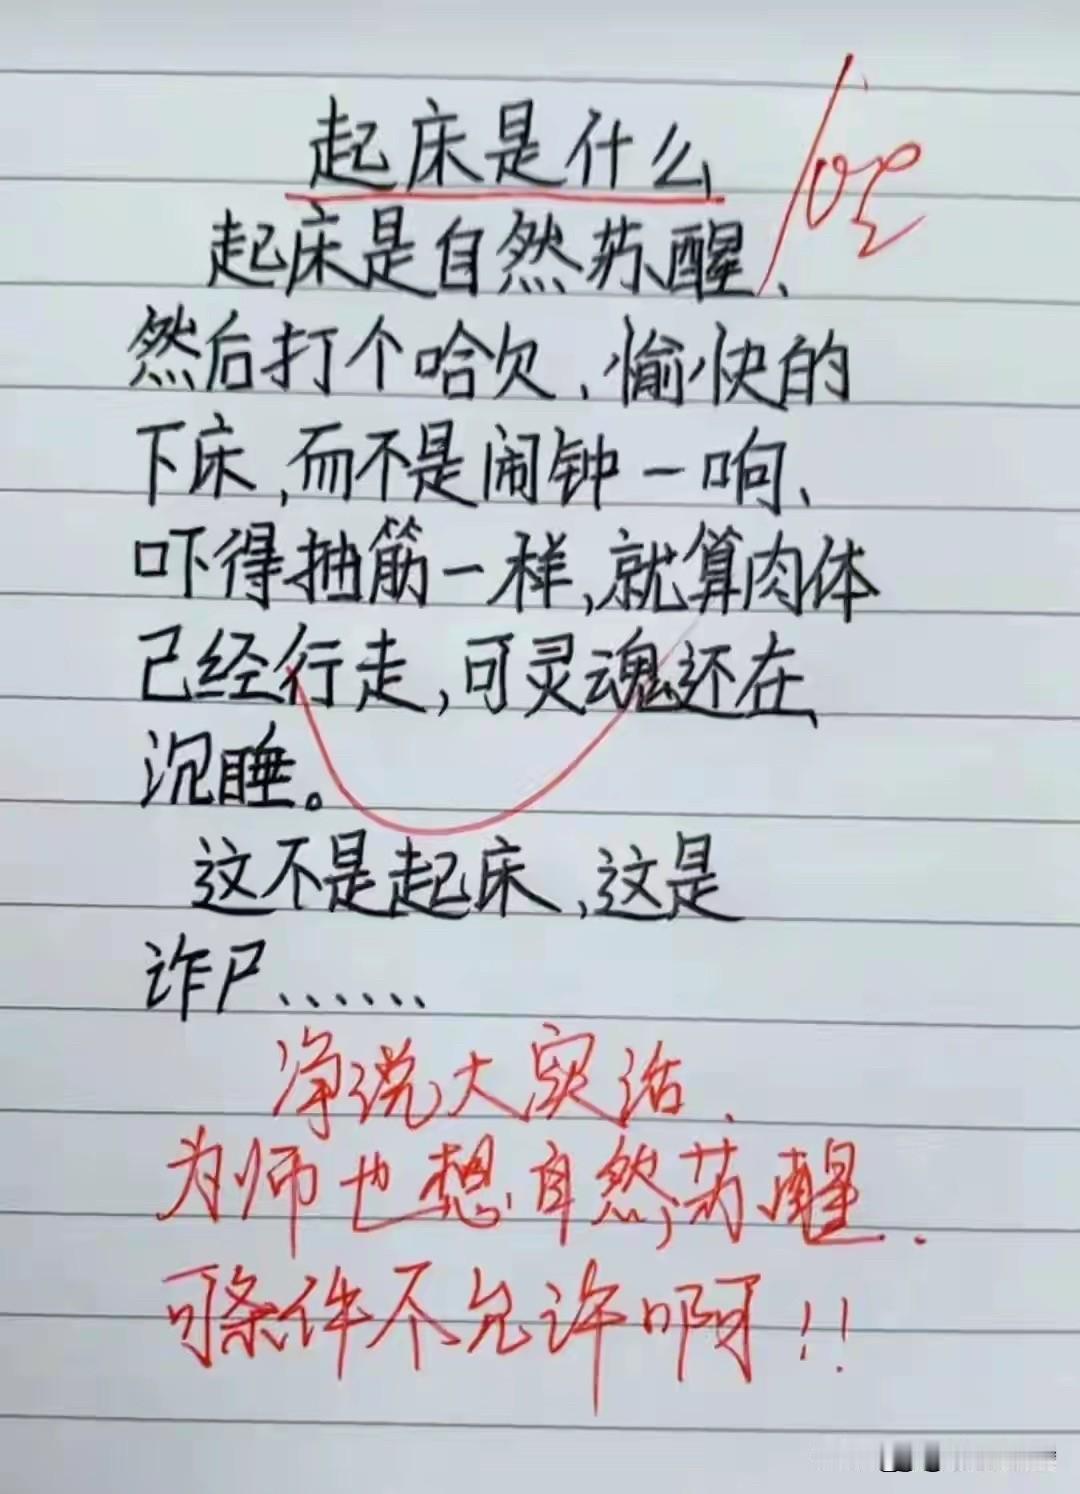 起床是什么
起床是自然苏醒、
然后打个哈欠、愉快的
下床,而不是闹钟一响、
吓得抽筋一样,就算肉体
己经行走,可灵魂还在
沉睡。
这不是起床,这是
诈尸......
净说大实话.
为师也想自然苏醒..
可条件不允许啊!!